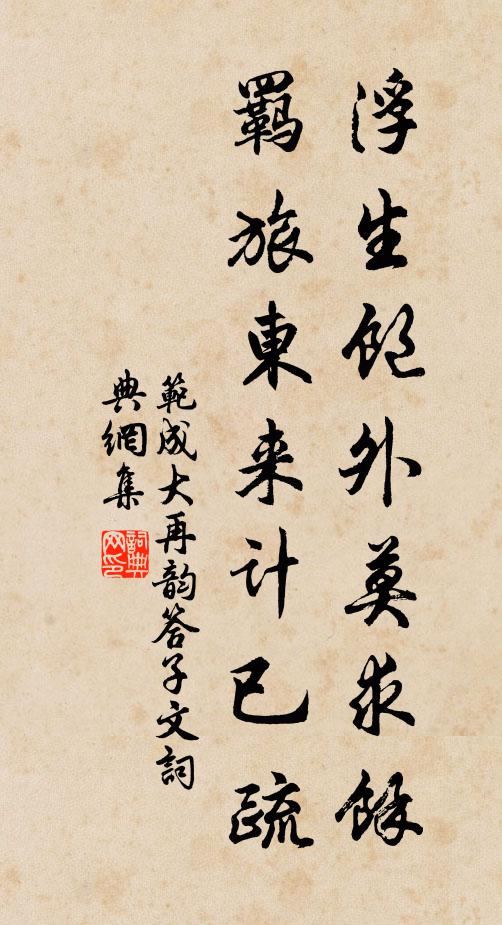 浮生飽外莫求餘
羇旅東来计已疏
範成大再韵答子文詞
典網集
詞典网印